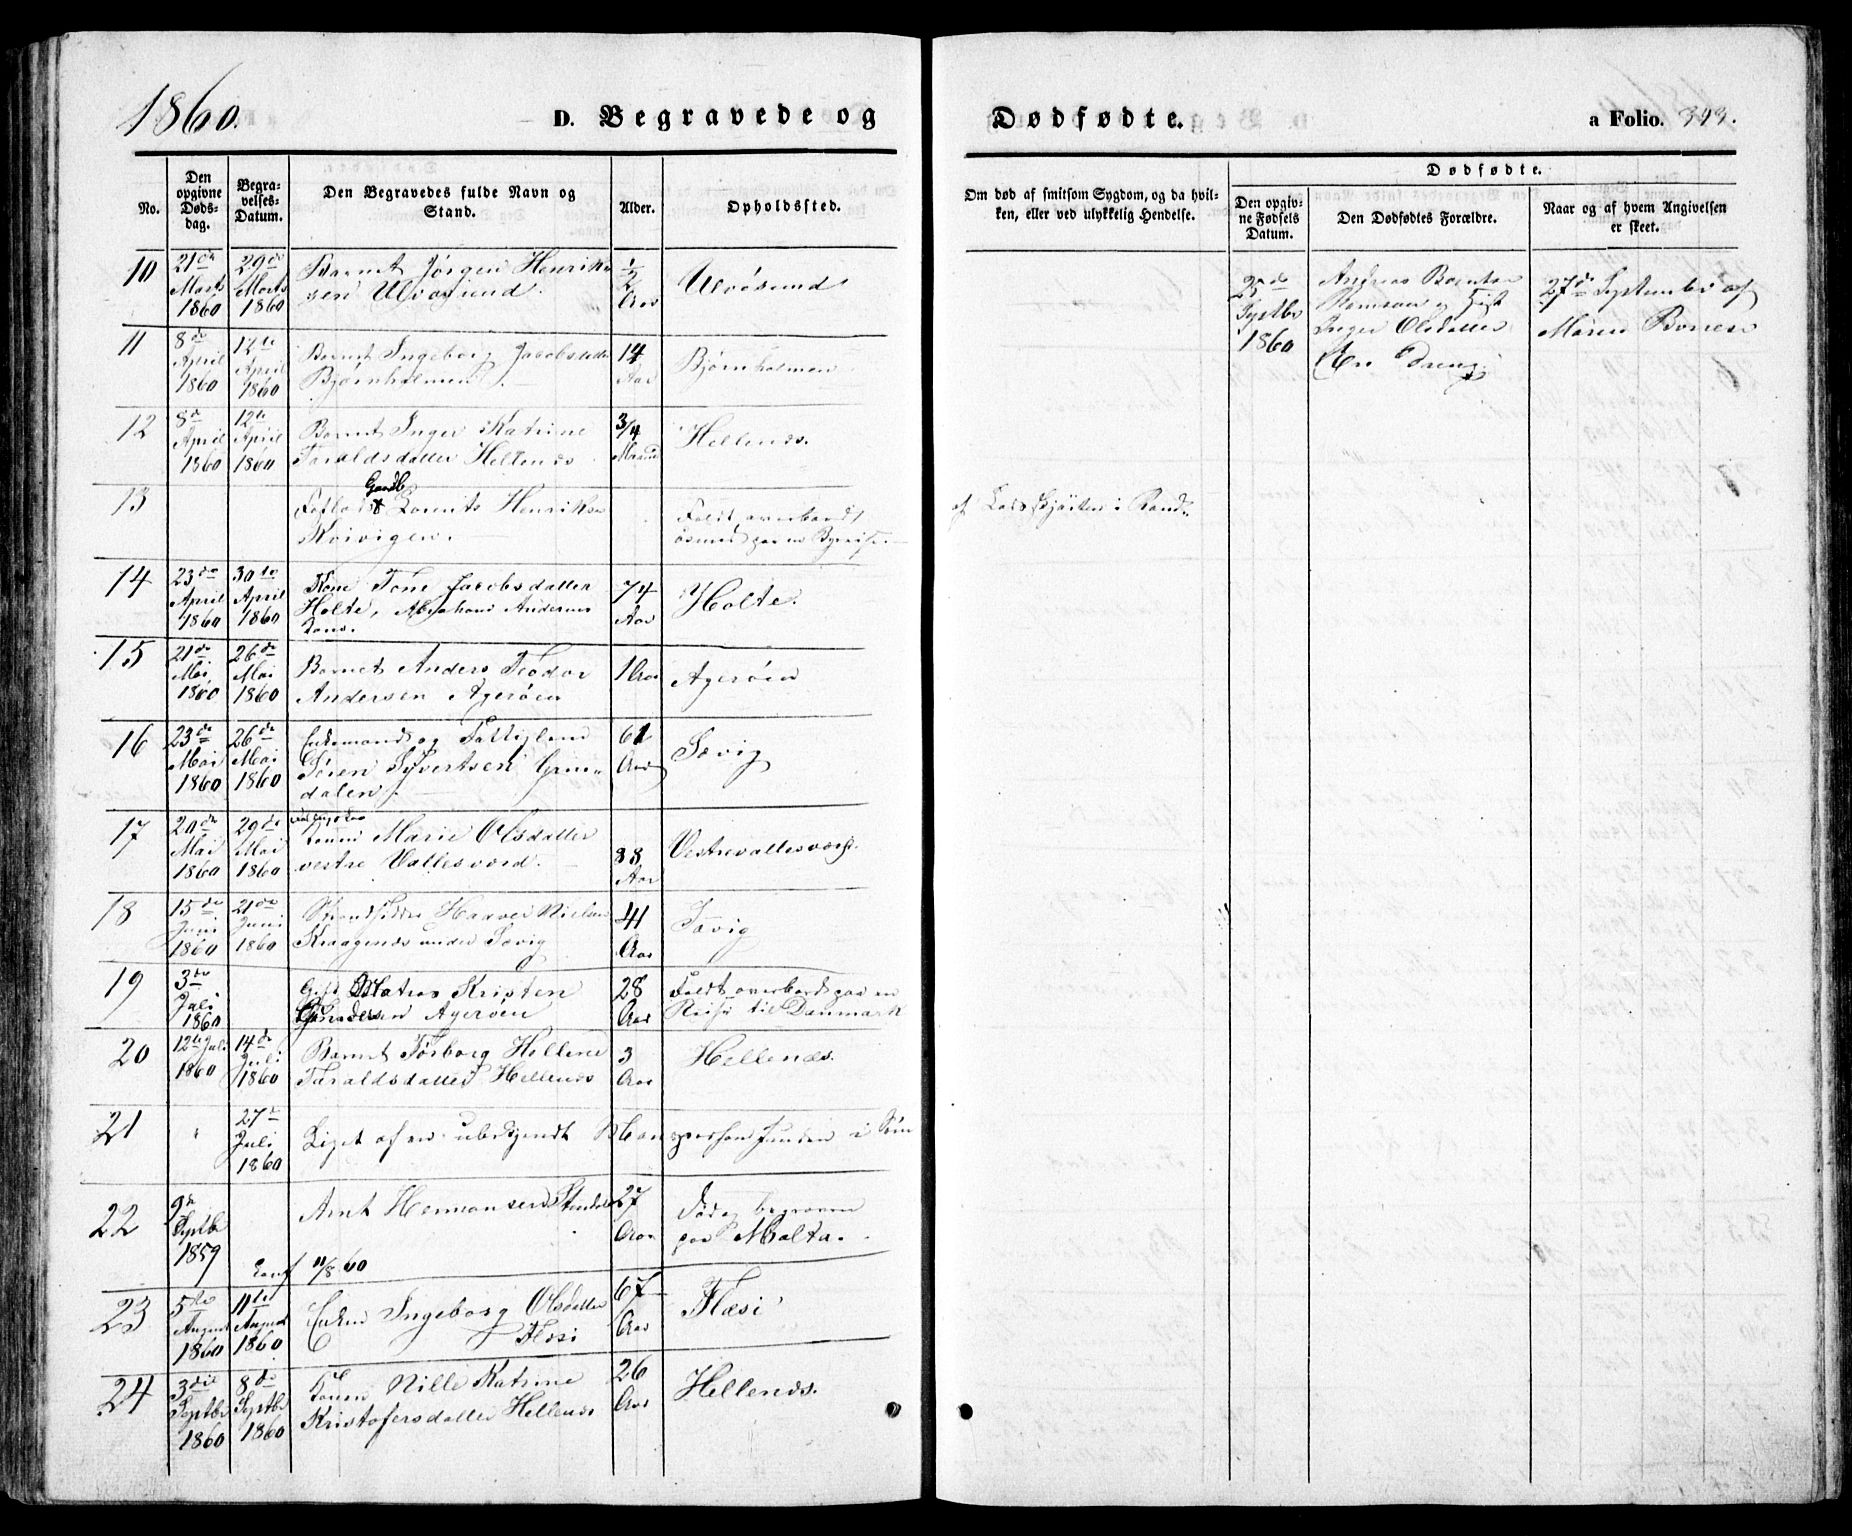 1860.
D. Begravede og
No.
Den opgivne Dødsdag.
Begravelses-Datum.
Den Begravedes fulde Navn og Stand.
Alder.
Opholdssted.
10 21de Marts 1860 29de Marts 1860 Barnet Jørgen Henriksen Ulvøsund ½ Aar Ulvösund
11 8de April 1860 12te April 1860 Barnet Ingeborg Jacobsdatter Bjørnholmen 14 Aar Bjørnholmen
12 8de April 1860 12te April 1860 Barnet Inger Katrine Taraldsdatter Hellenes 3/4 Maaned Hellenæs.
13 Lorents Henriksen Kvivigen. Faldt overbord
14 23de April 1860 30te April 1860 Kone Tone Jacobsdatter Holte, Abraham Andersens Kone. 74 Aar Holte.
15 21de Mai 1860 26de Mai 1860 Barnet Anders Teodor Andersen Agerøen 1 Aar Agerøen
16 23de Mai 1860 26de Mai 1860 Enkemand og Fattiglem Søren Syvertsen Grimdalen 61 Aar Sævig
17 20de Mai 1860 29de Mai 1860 Konen Marie Olsdatter vestre Vallesværd. 88 Aar Vestrevallesværd.
18 15de Juni 1860 21de Juni 1860 Strandsidder Haaver Nielsen Kraagenæs under Sævig 41 Aar Sævig
19 3de Juli 1860 Gift Matros Kristen Gundersen Agerøen 28 Aar Faldt overbord paa en Reise til Danmark
20 12te Juli 1860 14de Juli 1860 Barnet Torborg Hellene Taraldsdatter Hellenæs 3 Aar Hellenæs.
21 " 27de Juli 1860 Liget af en ubekjendt Mandsperson funden i Søen
22 9de Septbr 1859 Arnt Hermansen 27 Aar Død og begraven paa Malta.
11/8 60
23 5te August 1860 11te August 1860 Enken Ingeborg Olsdatter Flæsi 67 Aar Flæsi
24 3die Septbr 1860 8de Septbr 1860 Konen Nille Katrine Kristofersdatter Hellenæs 26 Aar Hellenæs.
Dødfødte.
a Folio. 343.
Om død af smitsom Sygdom, og da hvilken, eller ved ulykkelig Hendelse.
Dødfødte.
Den opgivne Fødsels Datum.
Den Dødfødtes Forældre.
Naar og af hvem Angivelsen er skeet.
25de Septbr 1860 Andreas og Inger Olsdatter En Dreng. 27de September af Maren
af Lars i